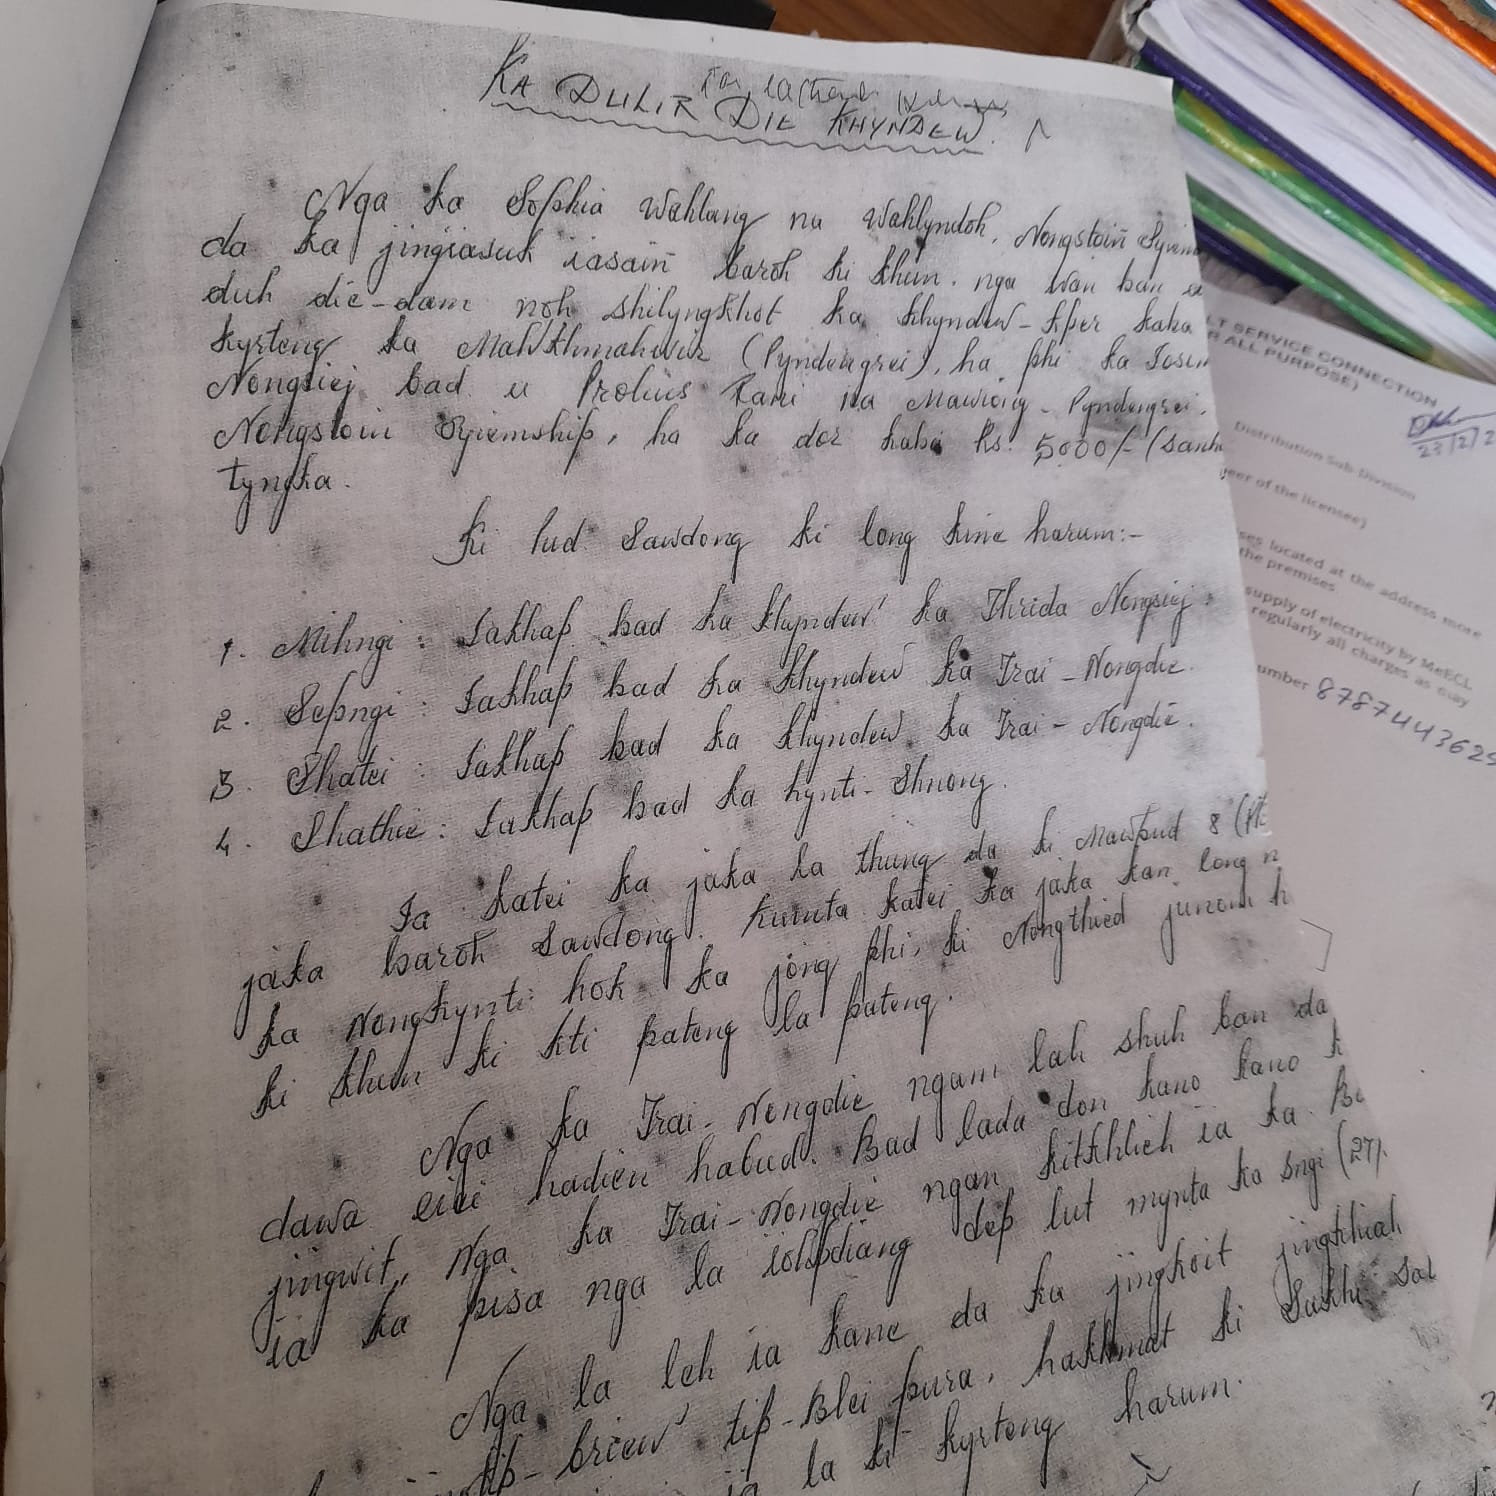 KA DULIR DIE KHYNDEW.
Nga ka Sophia Wahlang na Wahlyndoh, Nongstoiñ
da ka jingiasuk iasaiñ baroh ki khun. nga wan ban
duh die-dam noh shilyngkhot ka khyndew-kper kaba
kyrteng ka (Pyndengrei), ha phi ka
Nongsiej bad u Prolius Rani na Mawiong - Pyndengrei.
Nongstoin Syiemship, ha ka dor kaba Rs. 5000/- (sanh
tyngka.
Ki lud sawdong ki long kine harum:-
1. Mihngi : Iakhap bad ka khyndew ka Thrida Nongsiej.
2. Sepngi : Iakhap bad ka khyndew ka Trai-Nongdie.
3. Shatei : Iakhap bad ka khyndew ka Trai-Nongdie.
4. Shathie : Iakhap bad ka hynti-Shnong.
Ia katei ka jaka la thung da ki Mawpud 8
jaka baroh sawdong. Kumta katei ka jaka kan long
ka Nongkynti hok ka jong phi, ki Nongthied junom
ki khun ki kti pateng la pateng.
Nga ka Trai-Nongdie ngam lah shuh ban da
dawa eiei hadien habud. Bad lada don kano kano
jingwit, Nga ka Trai-Nongdie ngan kitkhlieh ia ka
ia ka pisa nga la iohpdiang dep lut mynta ka sngi (27).
Nga la leh ia kane da ka jingkoit jingkhiah
tip-briew tip-Blei pura, hakhmat ki Sakhi
la ki kyrteng harum.
LT SERVICE CONNECTION
R ALL PURPOSE)
23/2/2
Distribution Sub-Division
eer of the licensee)
ses located at the address more
the premises
supply of electricity by MeECL
regularly all charges as may
umber 878744362